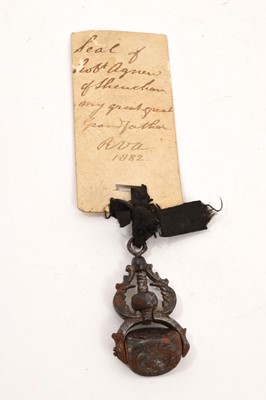 Seal of
Robt Agnew
of Sheuchan
my great great
Grandfather
RVA
1882